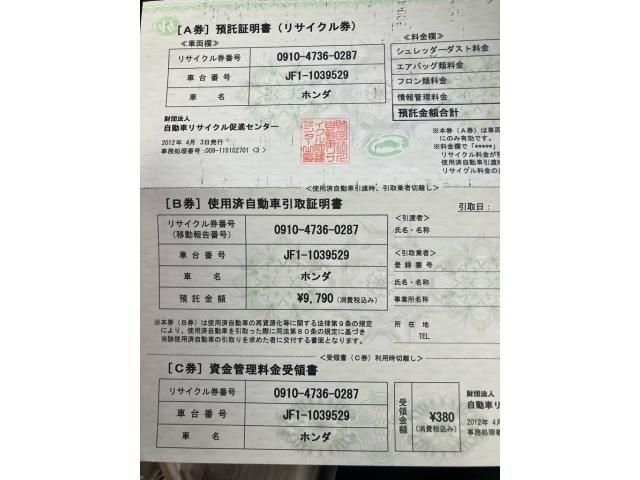 [A券] 預託証明書（リサイクル券）
≪車両欄≫
リサイクル券番号 0910-4736-0287
車台番号 JF1-1039529
車名 ホンダ
≪料金欄≫
シュレッダーダスト料金
エアバッグ類料金
フロン類料金
情報管理料金
預託金額合計
財団法人
自動車リサイクル促進センター
2012年 4月 3日発行
事務処理番号:009-115102701 <3>
※本券（A券）は車両
にのみ有効です。
※料金欄で「*****」
リサイクル料金が預
使用済自動車引渡時
リサイクル料金の
<使用済自動車引渡時、引取業者切離し>
[B券] 使用済自動車引取証明書
引取日：
リサイクル券番号
(移動報告番号) 0910-4736-0287
車台番号 JF1-1039529
車名 ホンダ
預託金額 ¥9,790 (消費税込み)
<引渡者>
氏名・名称
<引取業者>
登録番号
氏名・名称
事業所名称
所在地
TEL
※本券（B券）は使用済自動車の再資源化等に関する法律第9条の規定
により、使用済自動車を引取った際に同法第80条の規定に基づき
当該使用済自動車の引取りを求めた者に交付する書面となります。
<受領書（C券）利用時切離し>
[C券] 資金管理料金受領書
リサイクル券番号 0910-4736-0287
車台番号 JF1-1039529
車名 ホンダ
受領金額 ¥380
(消費税込み)
財団法人
自動車リ
2012年 4月
事務処理番